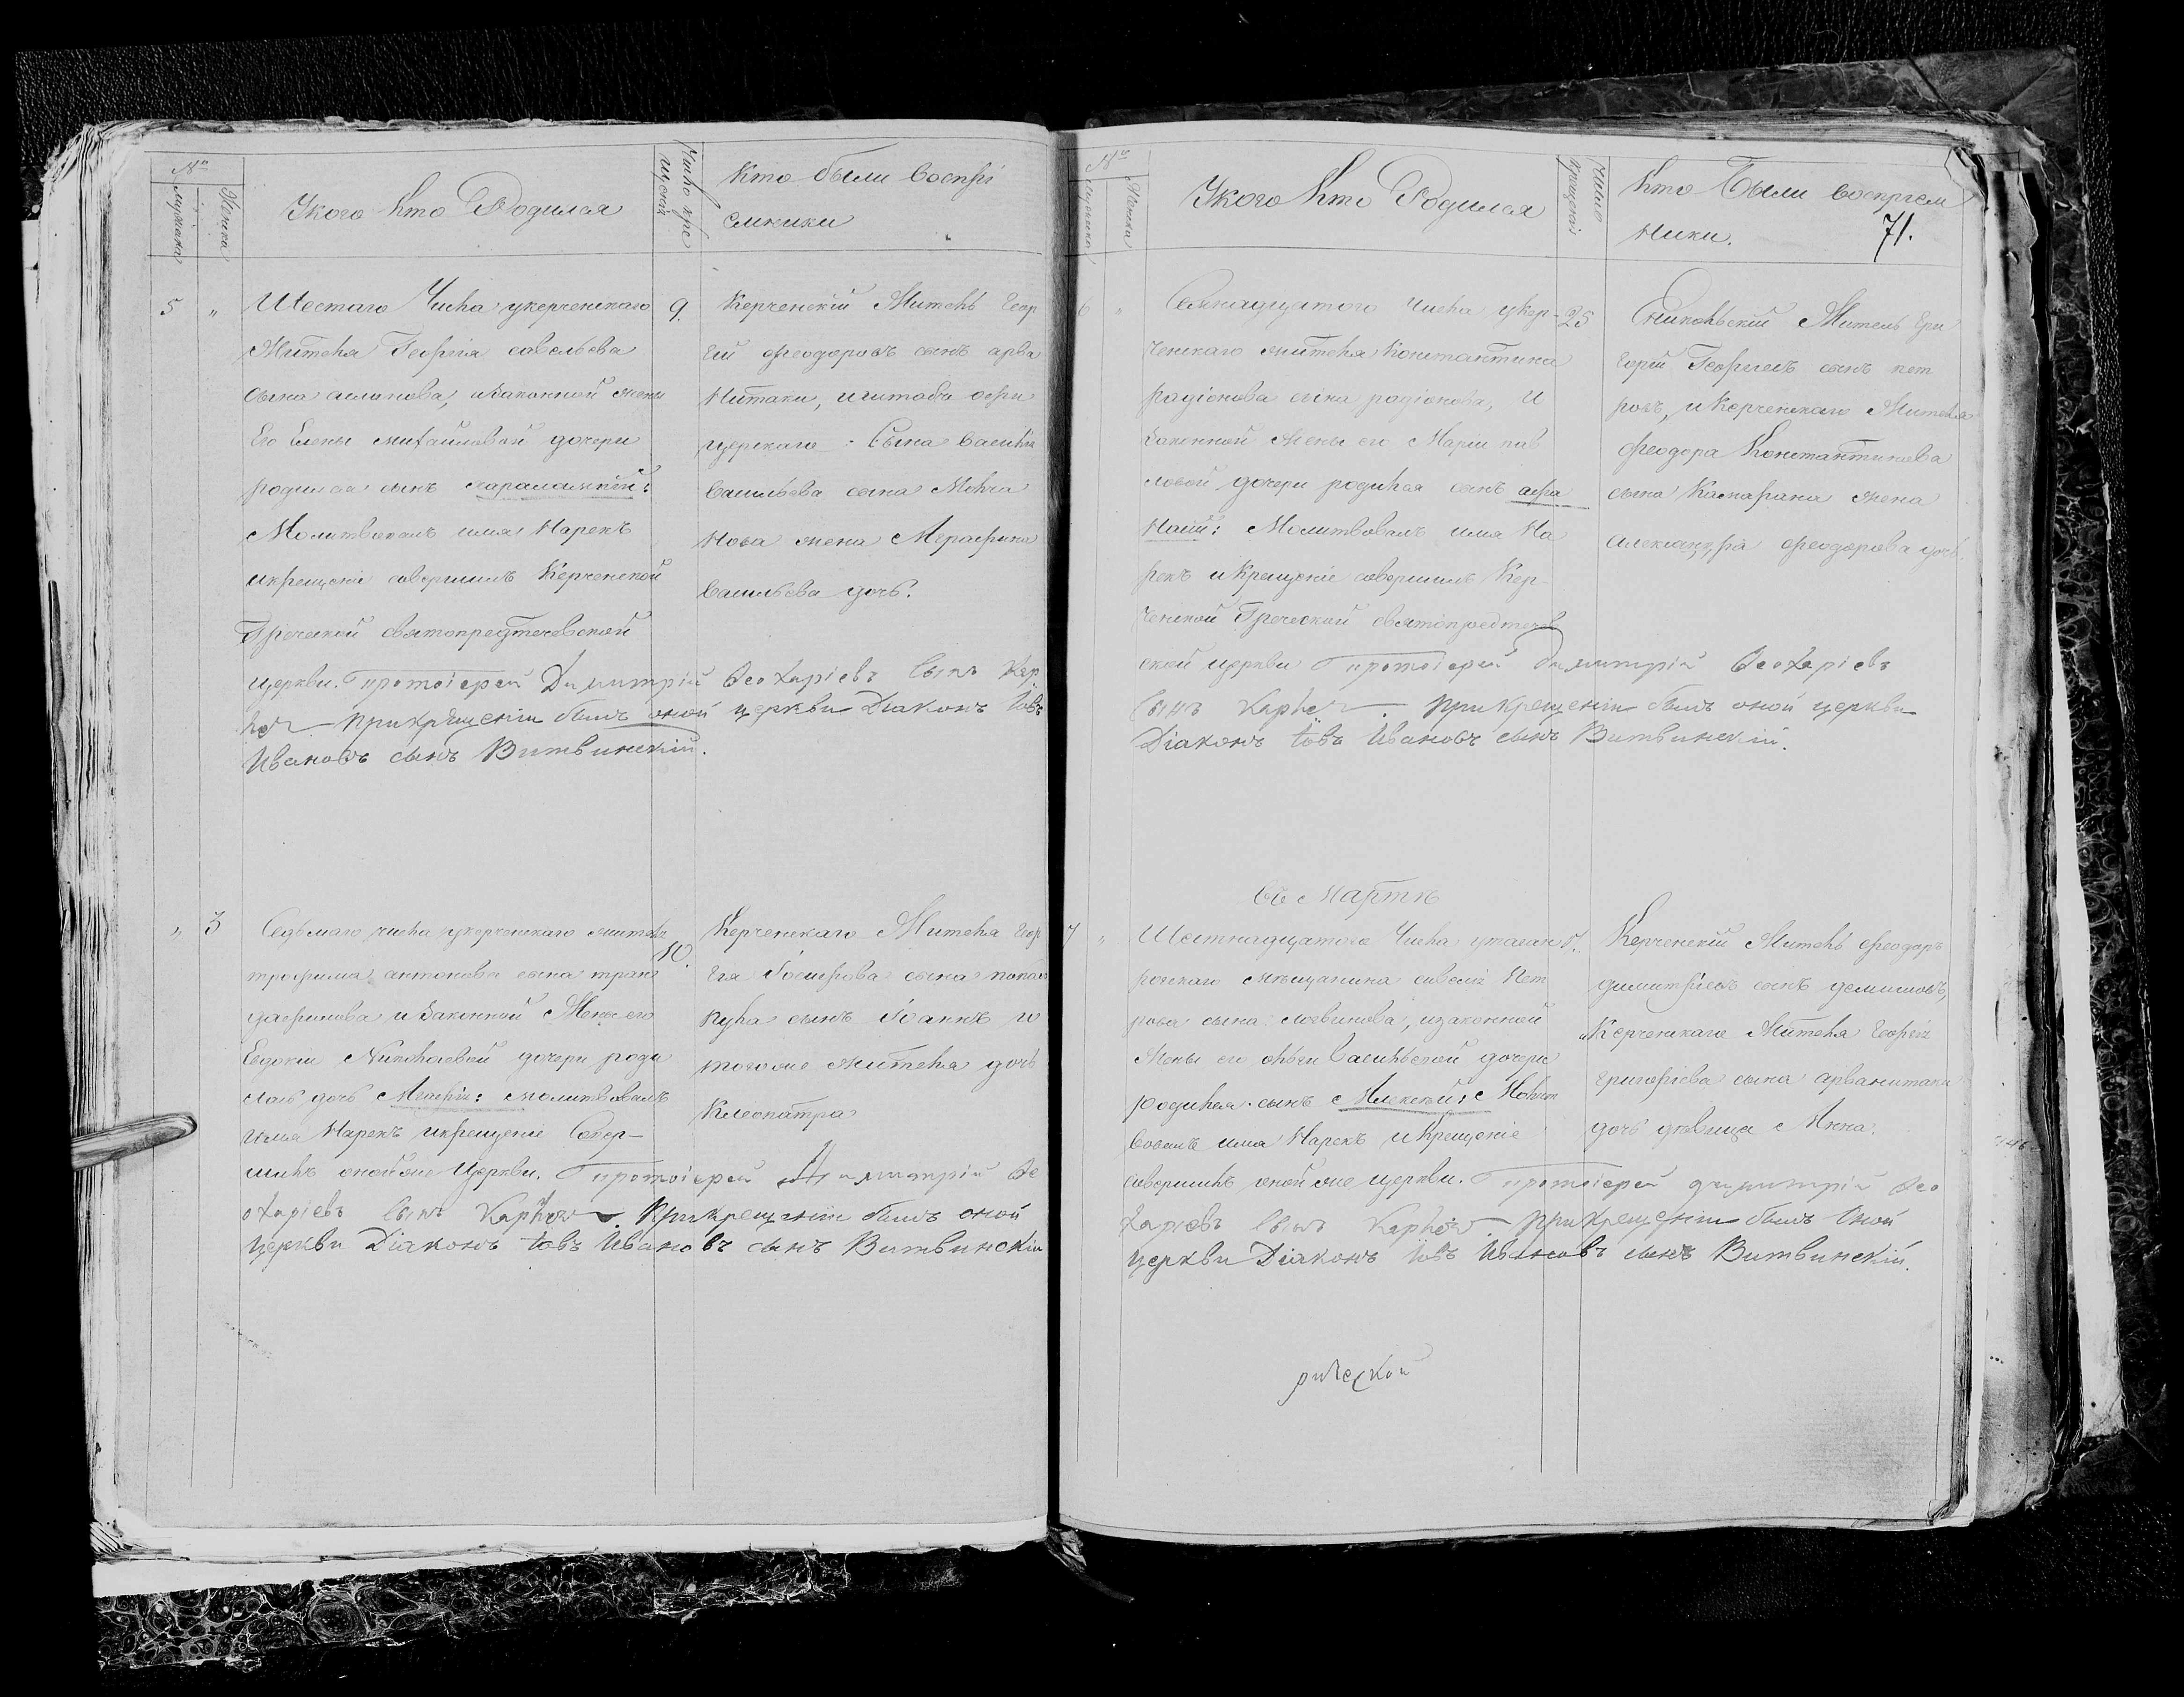 №
Мужска
Женска
У кого кто Родился
Число кре
щеній
Кто были воспрі
емники
5 „ Шестаго Числа укерченскаго 9.
Жителя Георгія савельева
сына асланова, изаконной жены
Его Елены михайловой дочери
родился сынъ харалампій:
Молитвовалъ имя Нарекъ
икрещеніе совершилъ Керченской
Греческой святопредтечевской
церкви. Протоіерей Димитрій Ѳеохаріевъ сынъ Кар
прикрещеніи былъ оной церкви Діаконъ Іовъ
Ивановъ сынъ Витвинскій.
Керченскій Житель Геор
гій феодоровъ сынъ арва
нитаки, иштаба офи
церскаго Сына Василія
Васильева сына
нова жена Серафима
Васильева дочь.
„ 3 Седьмаго числа укерченскаго жителя 10.
трофима антонова сына тран
дафилова изаконной Жены его
Евдокіи Николаевой дочери роди
лась дочь Агафія: молитвовалъ
имя Нарекъ икрещеніе Совер-
шилъ онойже Церкви. Протоіерей Димитрій Ѳе
охаріевъ сынъ прикрещеніи былъ оной
Церкви Діаконъ Іовъ Ивановъ сынъ Витвинскій
Керченскаго Жителя Геор
гія Іосифова сына
сынъ Іоаннъ и
тогоже жителя дочь
Клеопатра
№
Мужска
Женска
У кого Кто Родился
Число
крещеній
Кто Были воспріем
ники. 71.
6 „ Семнадцатого Числа укер- 25
ченскаго жителя Константина
радіонова сына радіонова, и
Законной Жены его Маріи пав
ловой дочери родился сынъ афа
насій: Молитвовалъ имя На
рекъ иКрещеніе совершилъ Кер-
ченской Греческой святопредтечев
ской церкви протоіерей Димитрій Ѳеохаріевъ
сынъ прикрещеніи былъ оной церкви
Діаконъ Іовъ Ивановъ сынъ Витвинскій.
Ениколскій Житель Гри
горій Георгіевъ сынъ пет
ровъ, иКерченскаго Жителя
феодора Константинова
сына жена
александра феодорова дочь.
Въ Мартѣ
7 „ Шестнадцатого Числа утаган
рогскаго мѣщанина савелія Пет
рова сына логвинова, изаконной
Жены его Васильевой дочери
родился сынъ Алексѣй: Молит
вовалъ имя Нарекъ иКрещеніе
совершилъ онойже церкви. протоіерей димитрій Ѳео
харіевъ сынъ прикрещеніи былъ Оной
церкви Діаконъ Іовъ Ивановъ сынъ Витвинскій.
Керченскій Житель феодоръ
димитріевъ сынъ
иКерченскаго Жителя Георгія
григоріева сына арванитаки
дочь дѣвица Анна.
рической